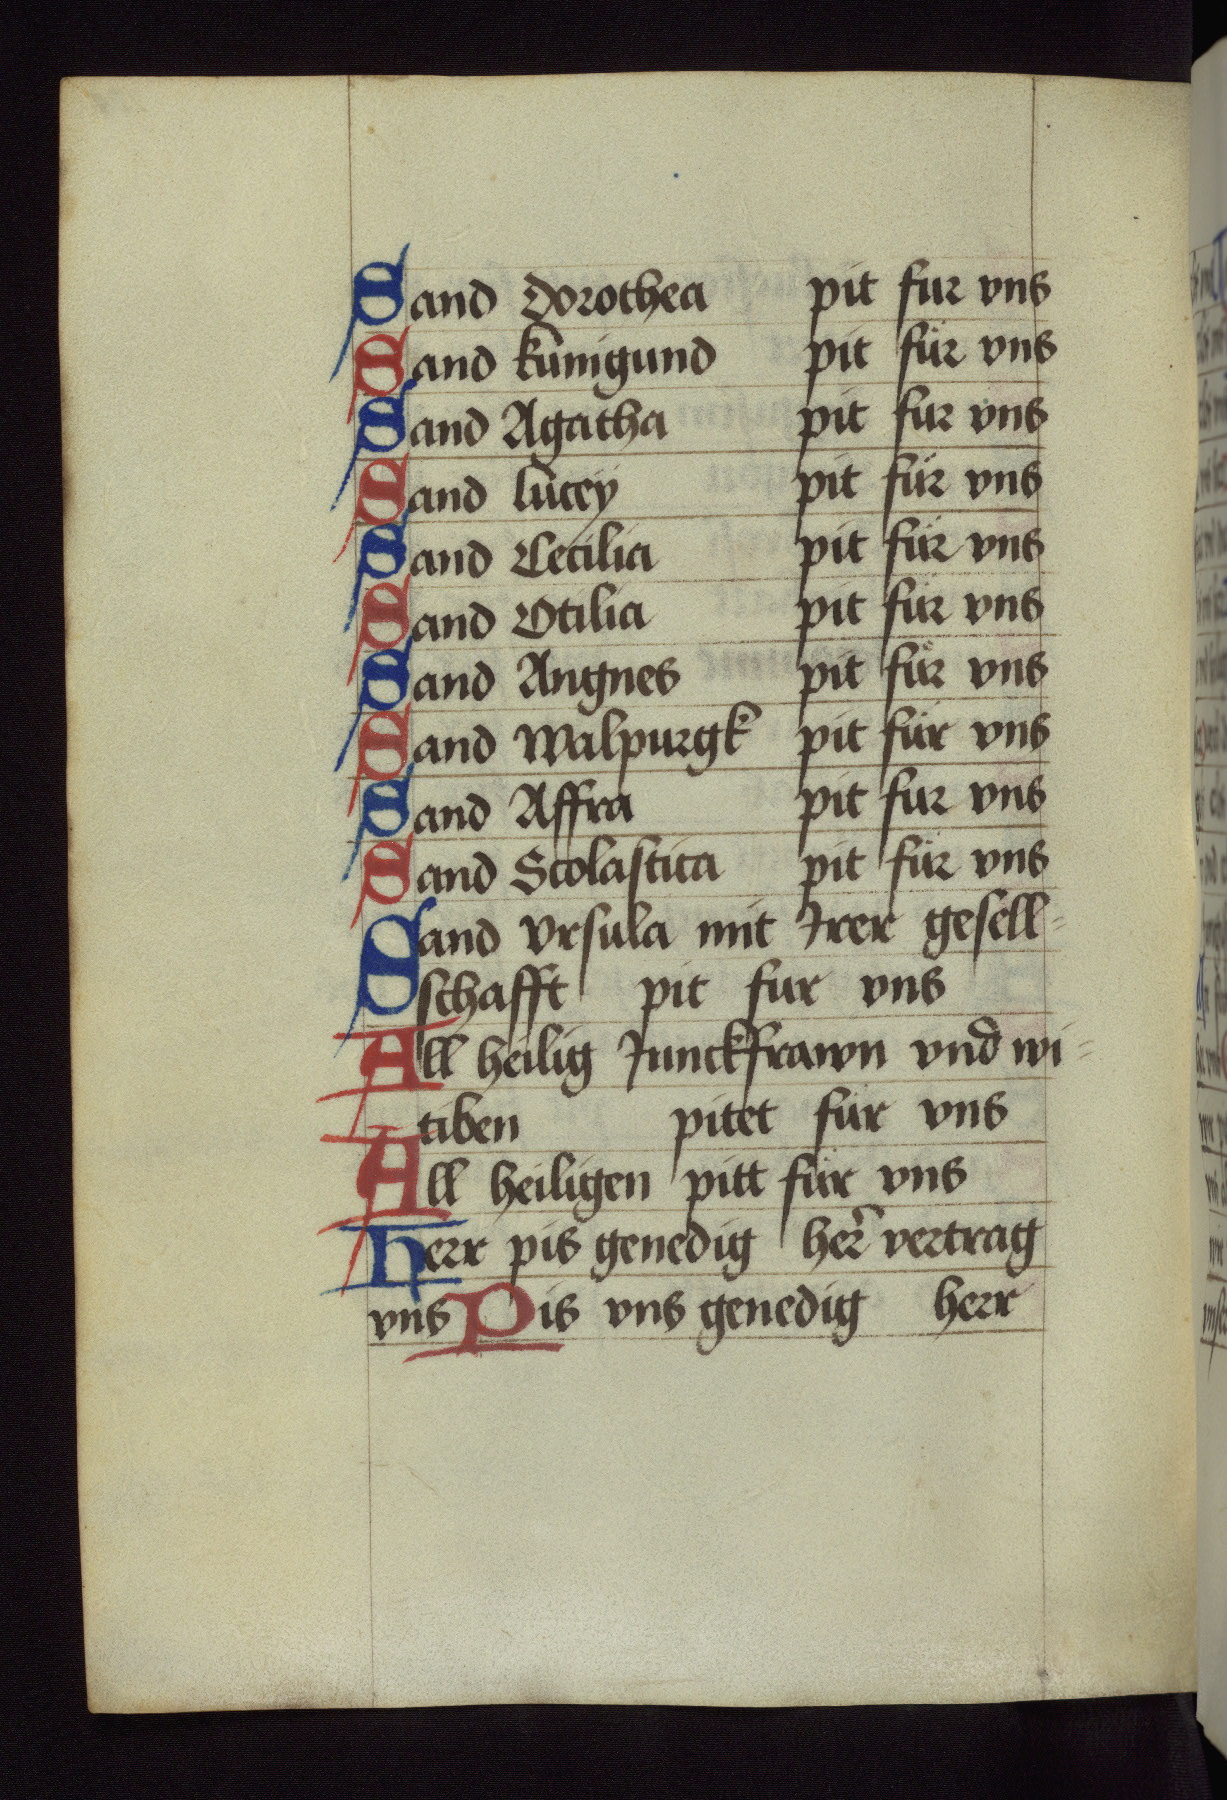 Sand dorothea pit fur vns
Sand kũnigund pit für vns
Sand Agatha pit fur vns
Sand lucey pit für vns
Sand Cecilia pit für vns
Sand Otilia pit für vns
Sand Angnes pit für vns
Sand Walpurgk pit für vns
Sand Affra pit fur vns
Sand Scolastica pit für vns
Sand vrsula mit Irer gesell=
schafft pit fur vns
All heilig Junckfrawn vnd wi=
tiben pitet für vns
All heiligen pitt für vns
Herr pis genedig her̃ vertrag
vns Pis vns genedig herr